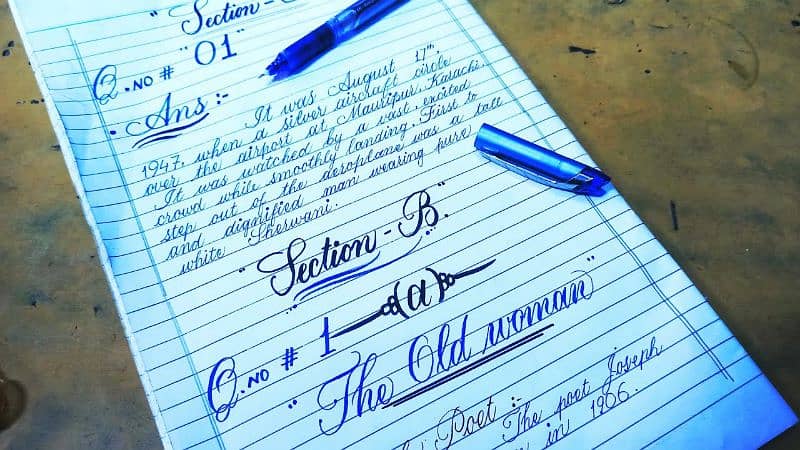 "Section -
Q.NO # "01"
Ans :-
It was August 17th,
1947, when a silver aircraft circle
over the airport at Mauripur, Karachi.
It was watched by a vast, excited
crowd while smoothly landing. First to
step out of the aeroplane was a tall
and dignified man wearing pure
white Sherwani.
"Section - B"
Q.NO # 1 (a)
"The Old woman"
Poet :-
The poet Joseph
in 1906.